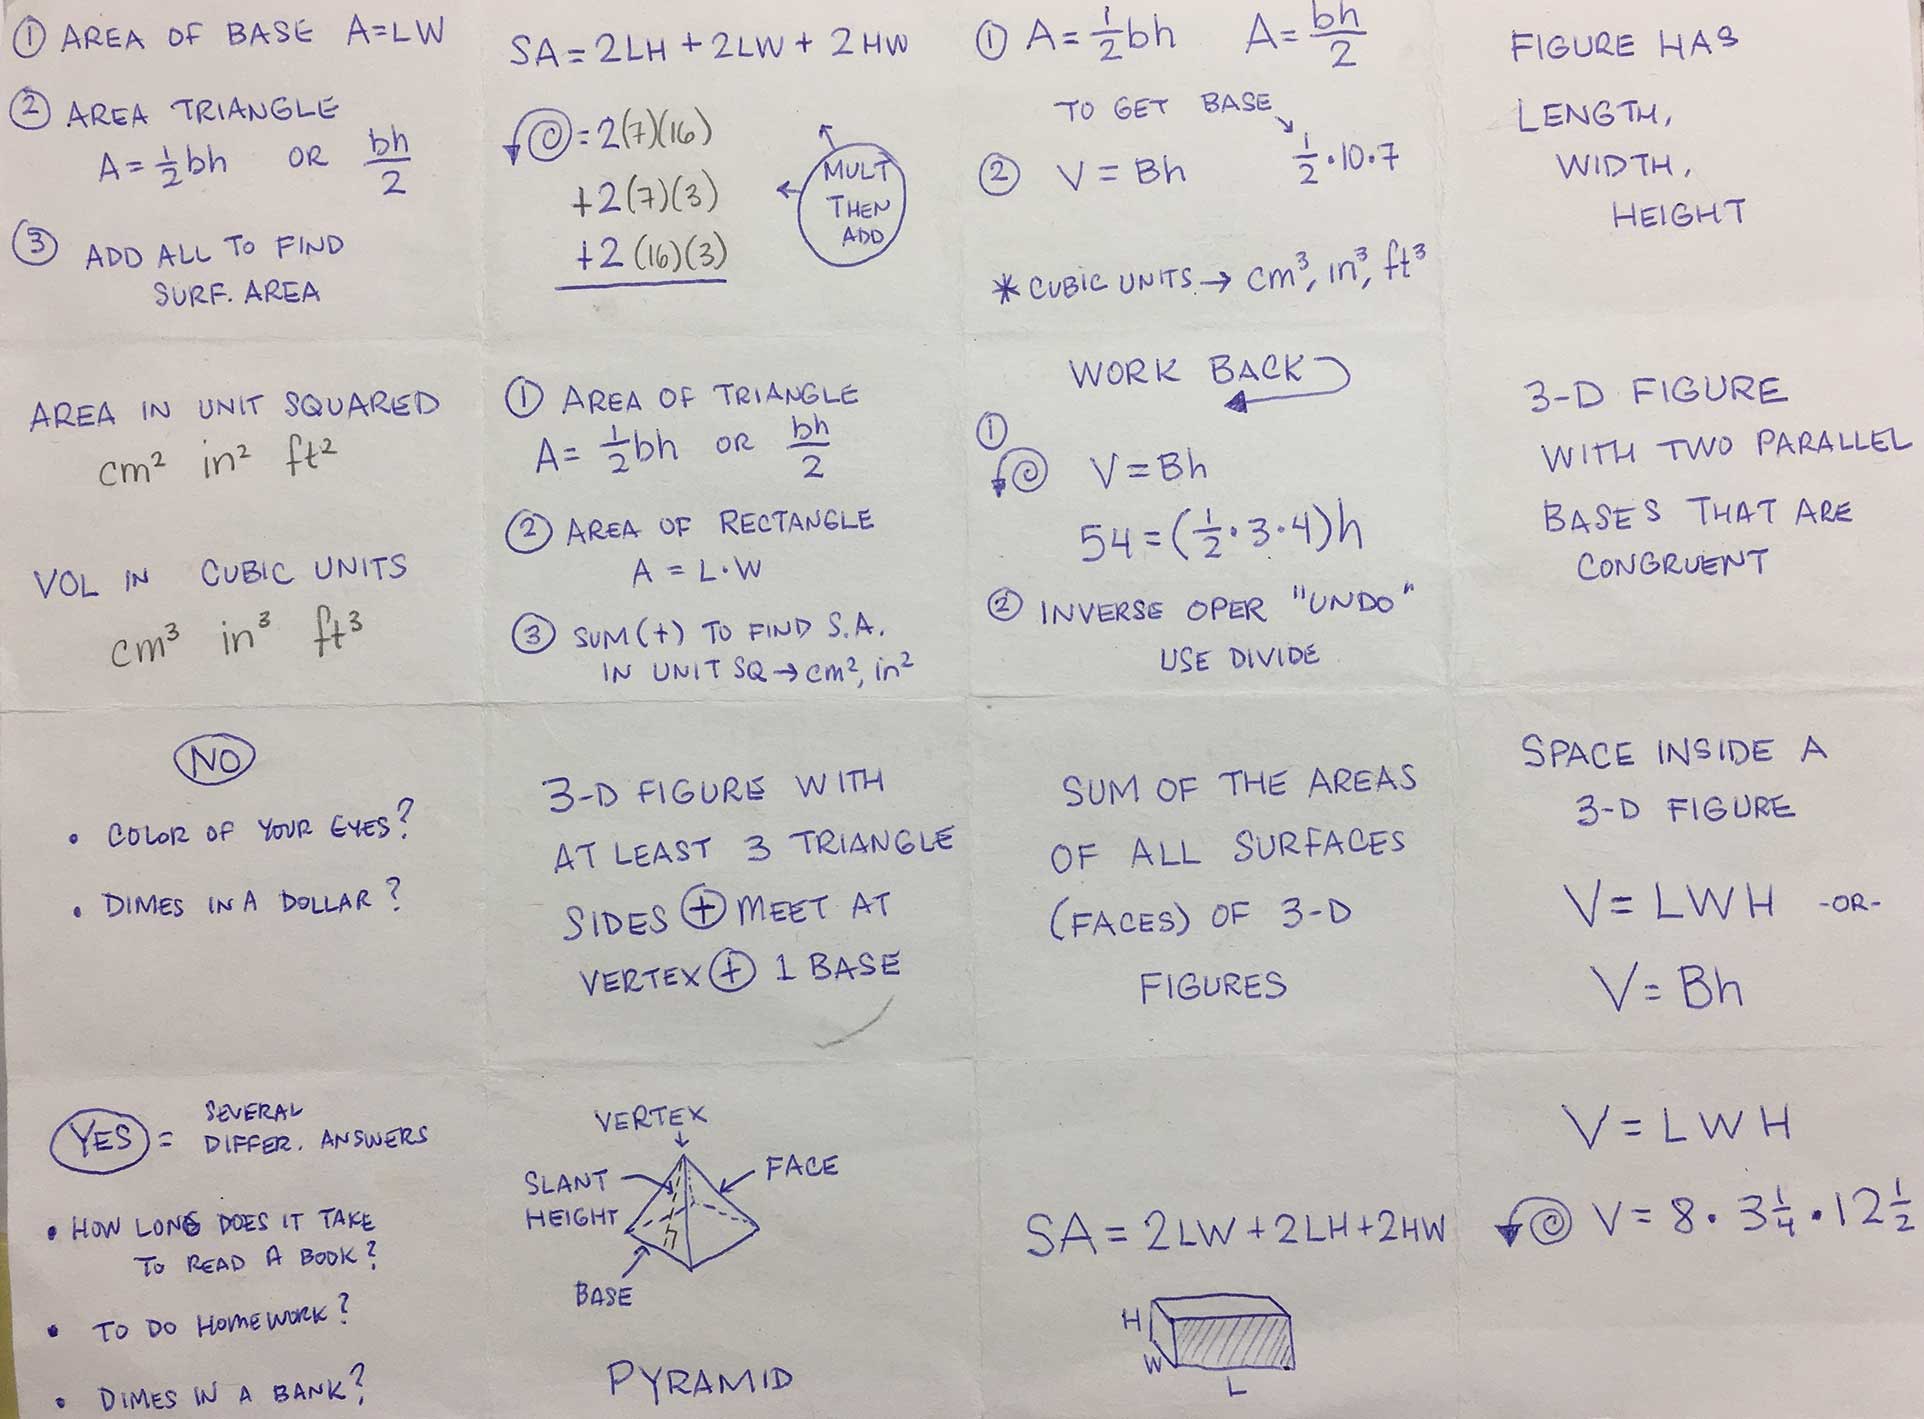 ① AREA OF BASE A=LW
② AREA TRIANGLE
A=½bh OR bh/2
③ ADD ALL TO FIND
SURF. AREA
SA=2LH+2LW+2HW
=2(7)(16)
+2(7)(3)
+2(16)(3)
MULT
THEN
ADD
① A=½bh A=bh/2
TO GET BASE
② V=Bh ½·10·7
*CUBIC UNITS→cm³, in³, ft³
FIGURE HAS
LENGTH,
WIDTH,
HEIGHT
AREA IN UNIT SQUARED
cm² in² ft²
VOL IN CUBIC UNITS
cm³ in³ ft³
① AREA OF TRIANGLE
A=½bh OR bh/2
② AREA OF RECTANGLE
A=L·W
③ SUM(+) TO FIND S.A.
IN UNIT SQ→cm², in²
WORK BACK
①
V=Bh
54=(½·3·4)h
② INVERSE OPER "UNDO"
USE DIVIDE
3-D FIGURE
WITH TWO PARALLEL
BASES THAT ARE
CONGRUENT
NO
• COLOR OF YOUR EYES?
• DIMES IN A DOLLAR?
3-D FIGURE WITH
AT LEAST 3 TRIANGLE
SIDES ⊕ MEET AT
VERTEX ⊕ 1 BASE
SUM OF THE AREAS
OF ALL SURFACES
(FACES) OF 3-D
FIGURES
SPACE INSIDE A
3-D FIGURE
V=LWH -OR-
V=Bh
YES = SEVERAL
DIFFER. ANSWERS
• HOW LONG DOES IT TAKE
TO READ A BOOK?
• TO DO HOMEWORK?
• DIMES IN A BANK?
VERTEX
SLANT
HEIGHT
FACE
BASE
PYRAMID
SA=2LW+2LH+2HW
H
W
L
V=LWH
V=8·3¼·12½